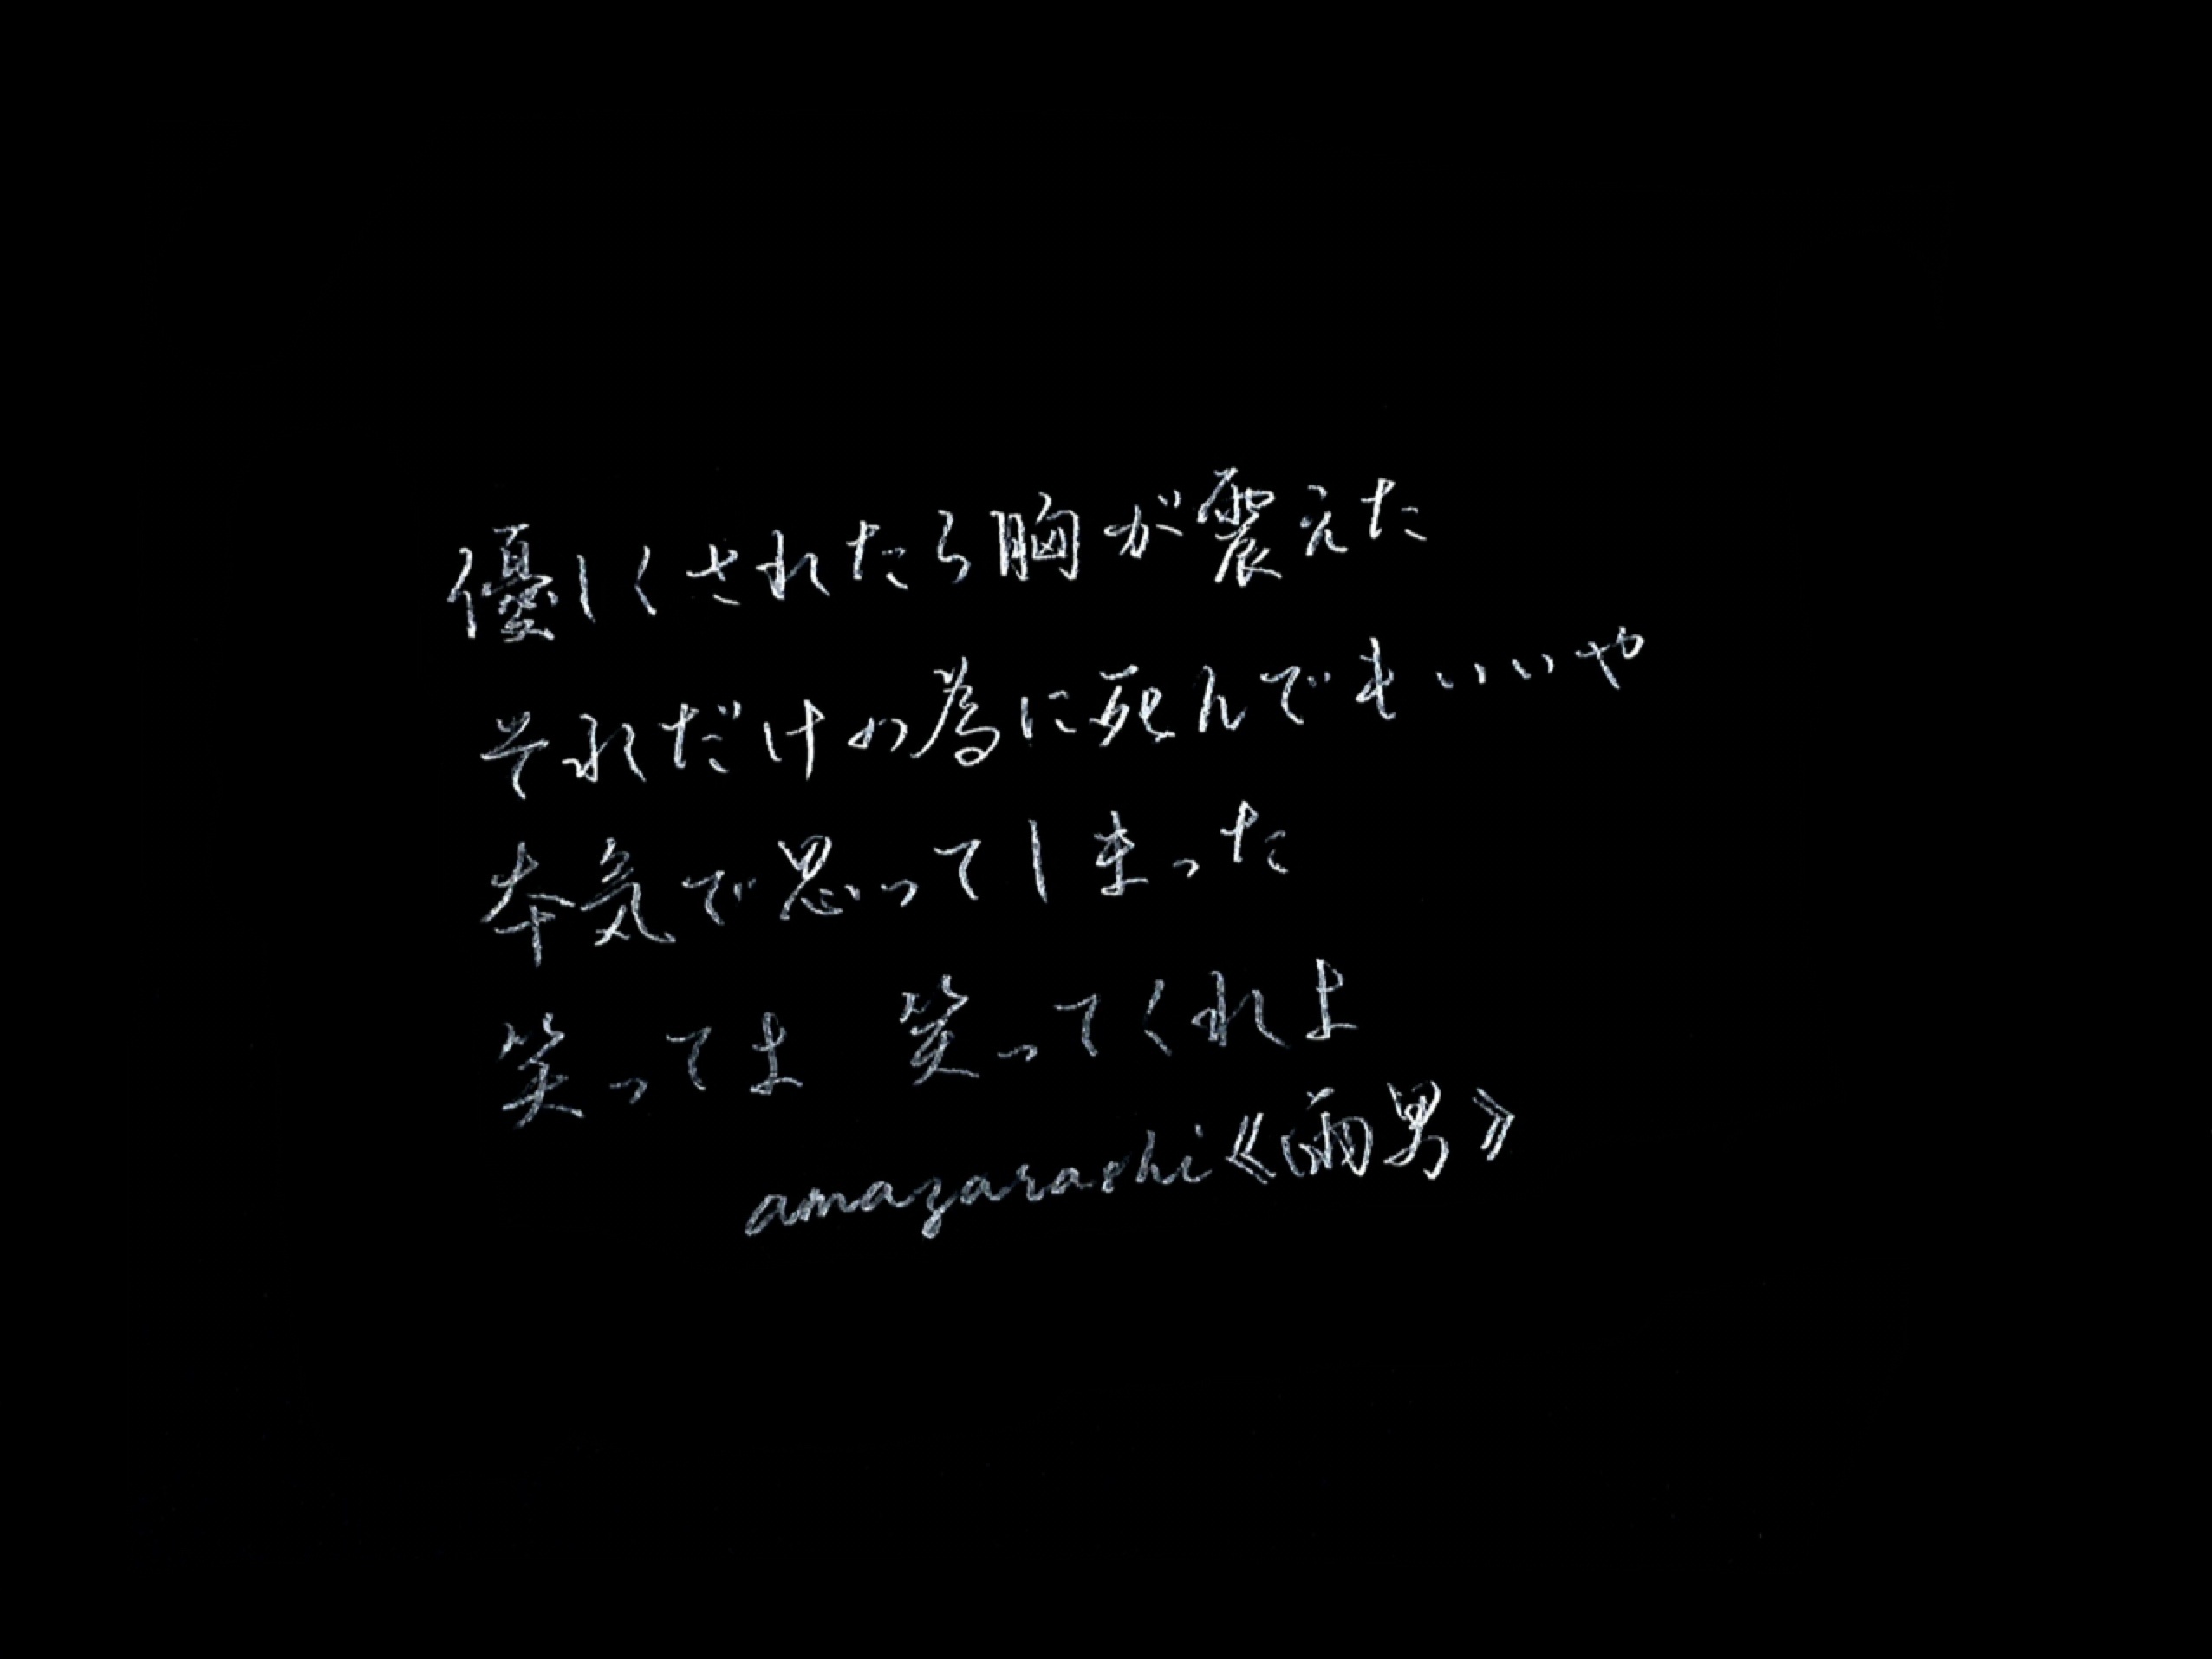 優しくされたら胸が震えた
それだけの為に死んでもいいや
本気で思ってしまった
笑ってよ 笑ってくれよ
amazarashi《雨男》